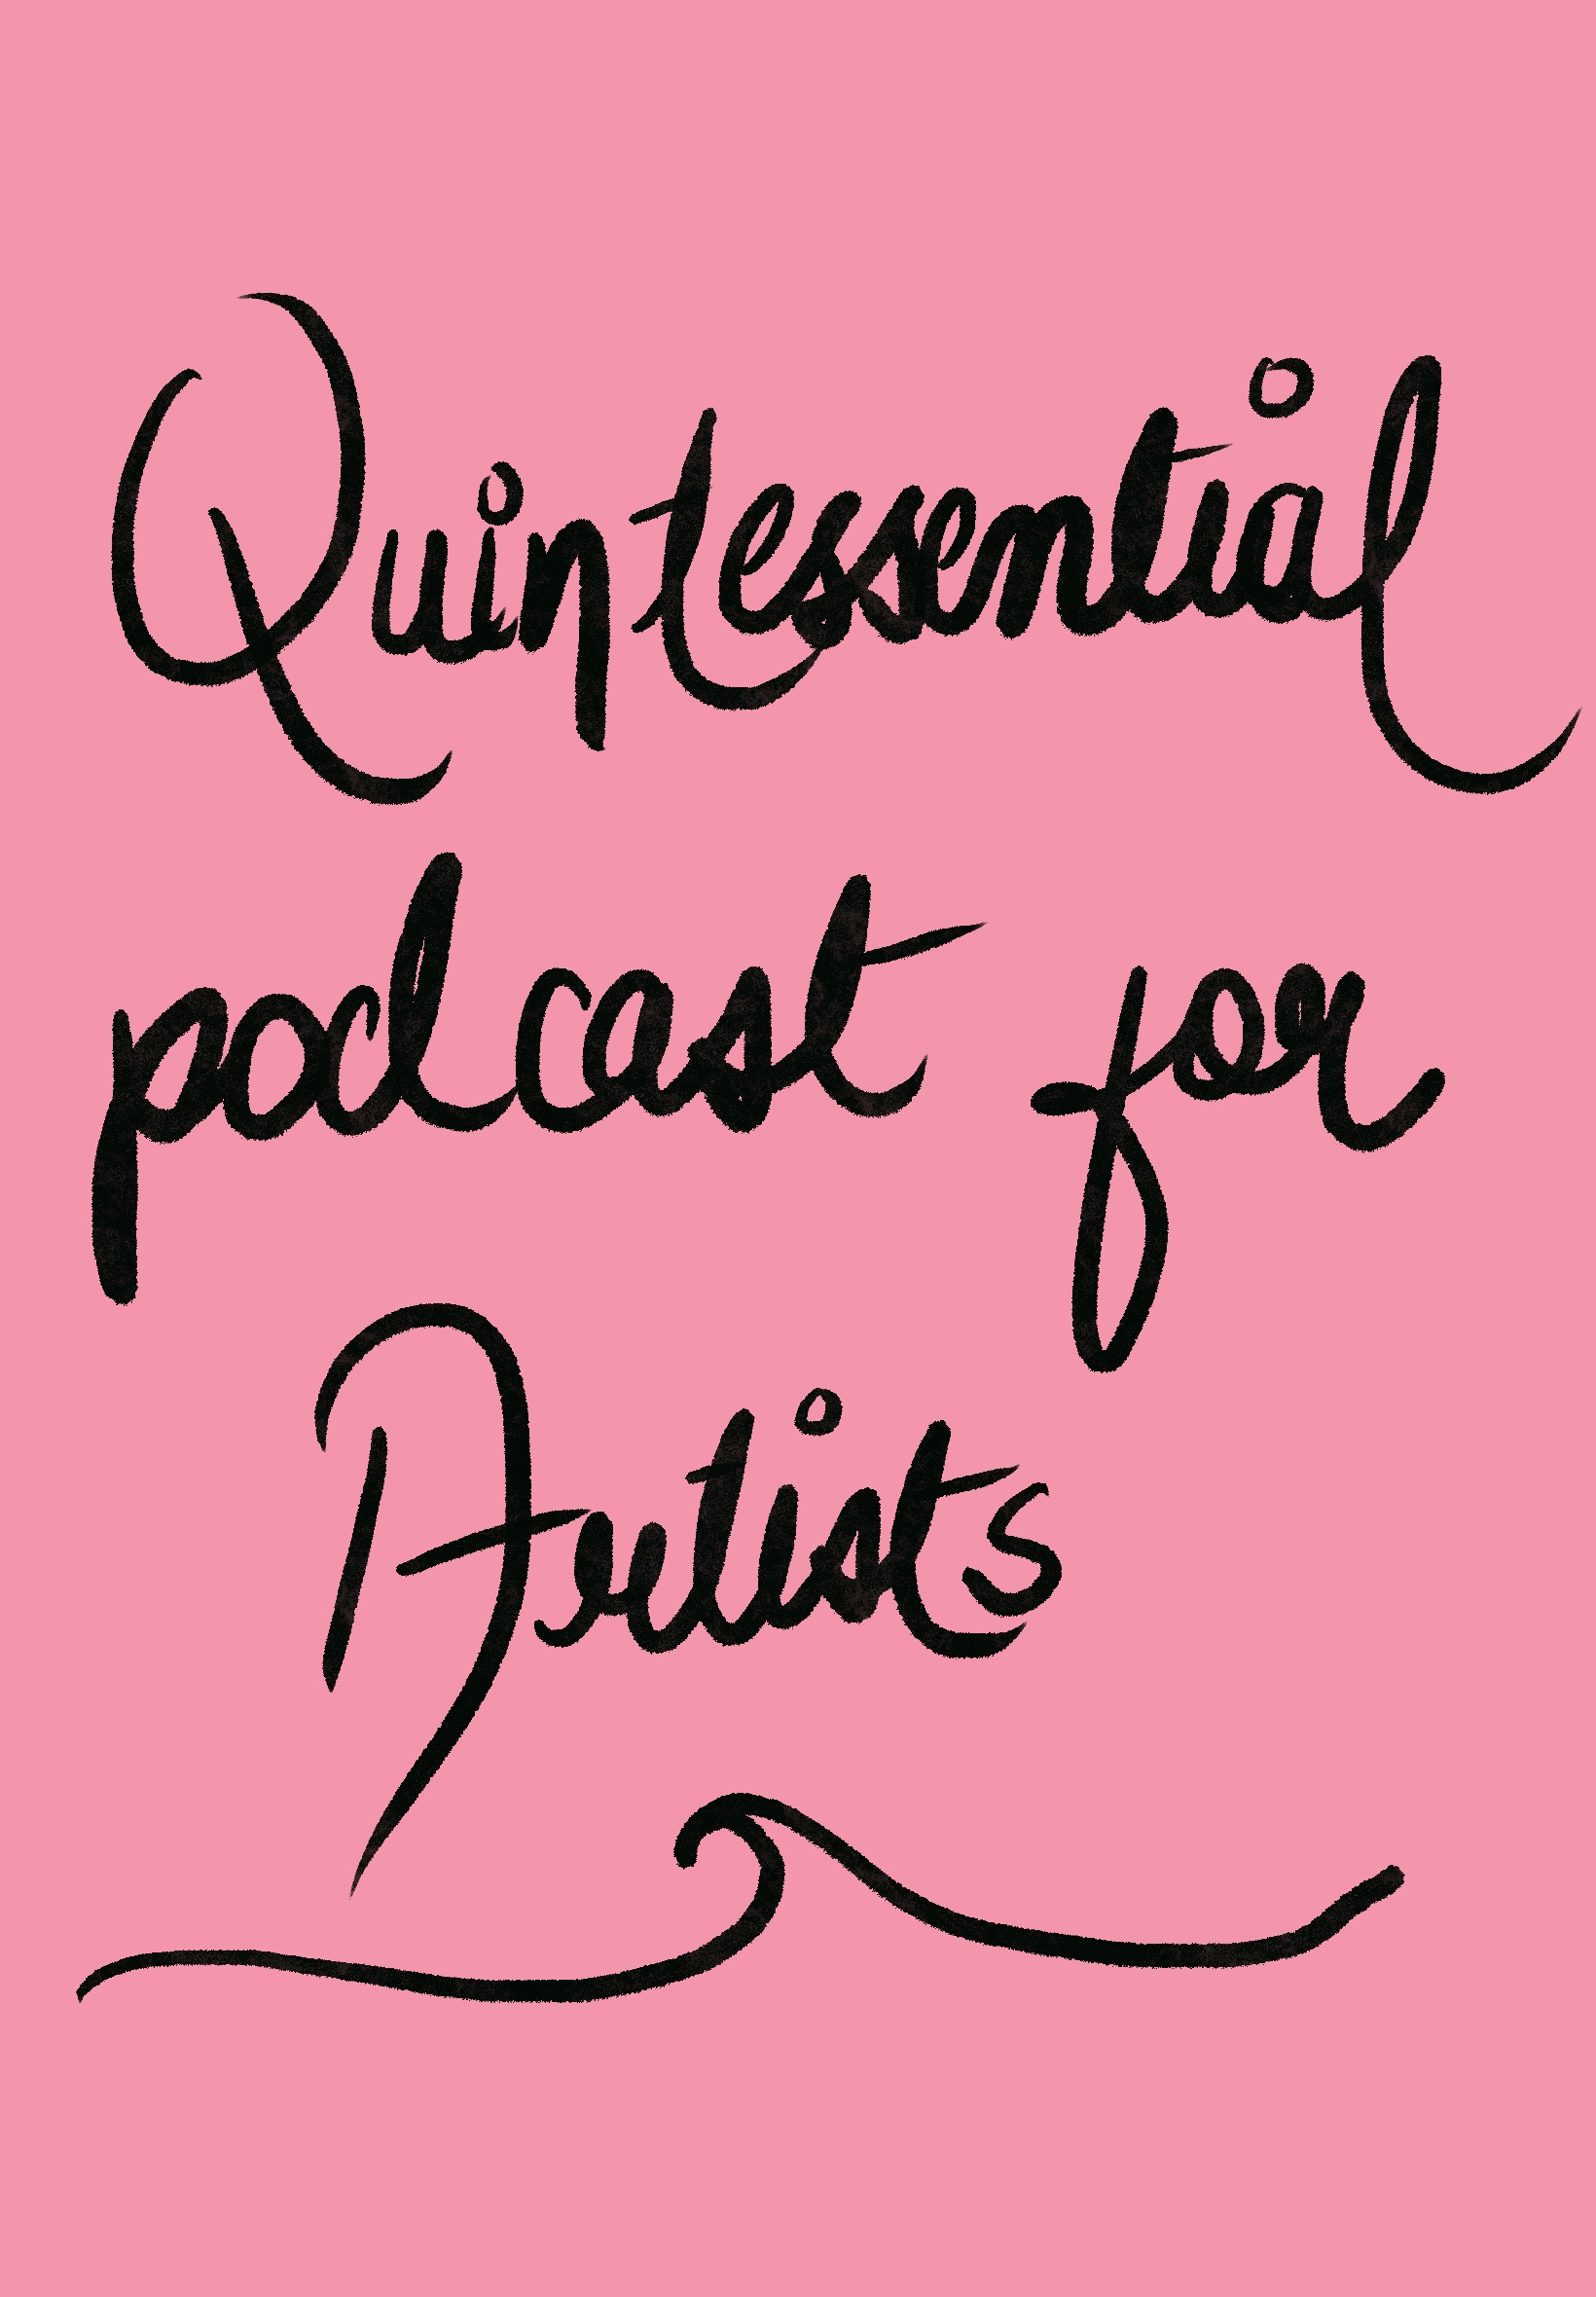 Quintessential
podcast for
Artists